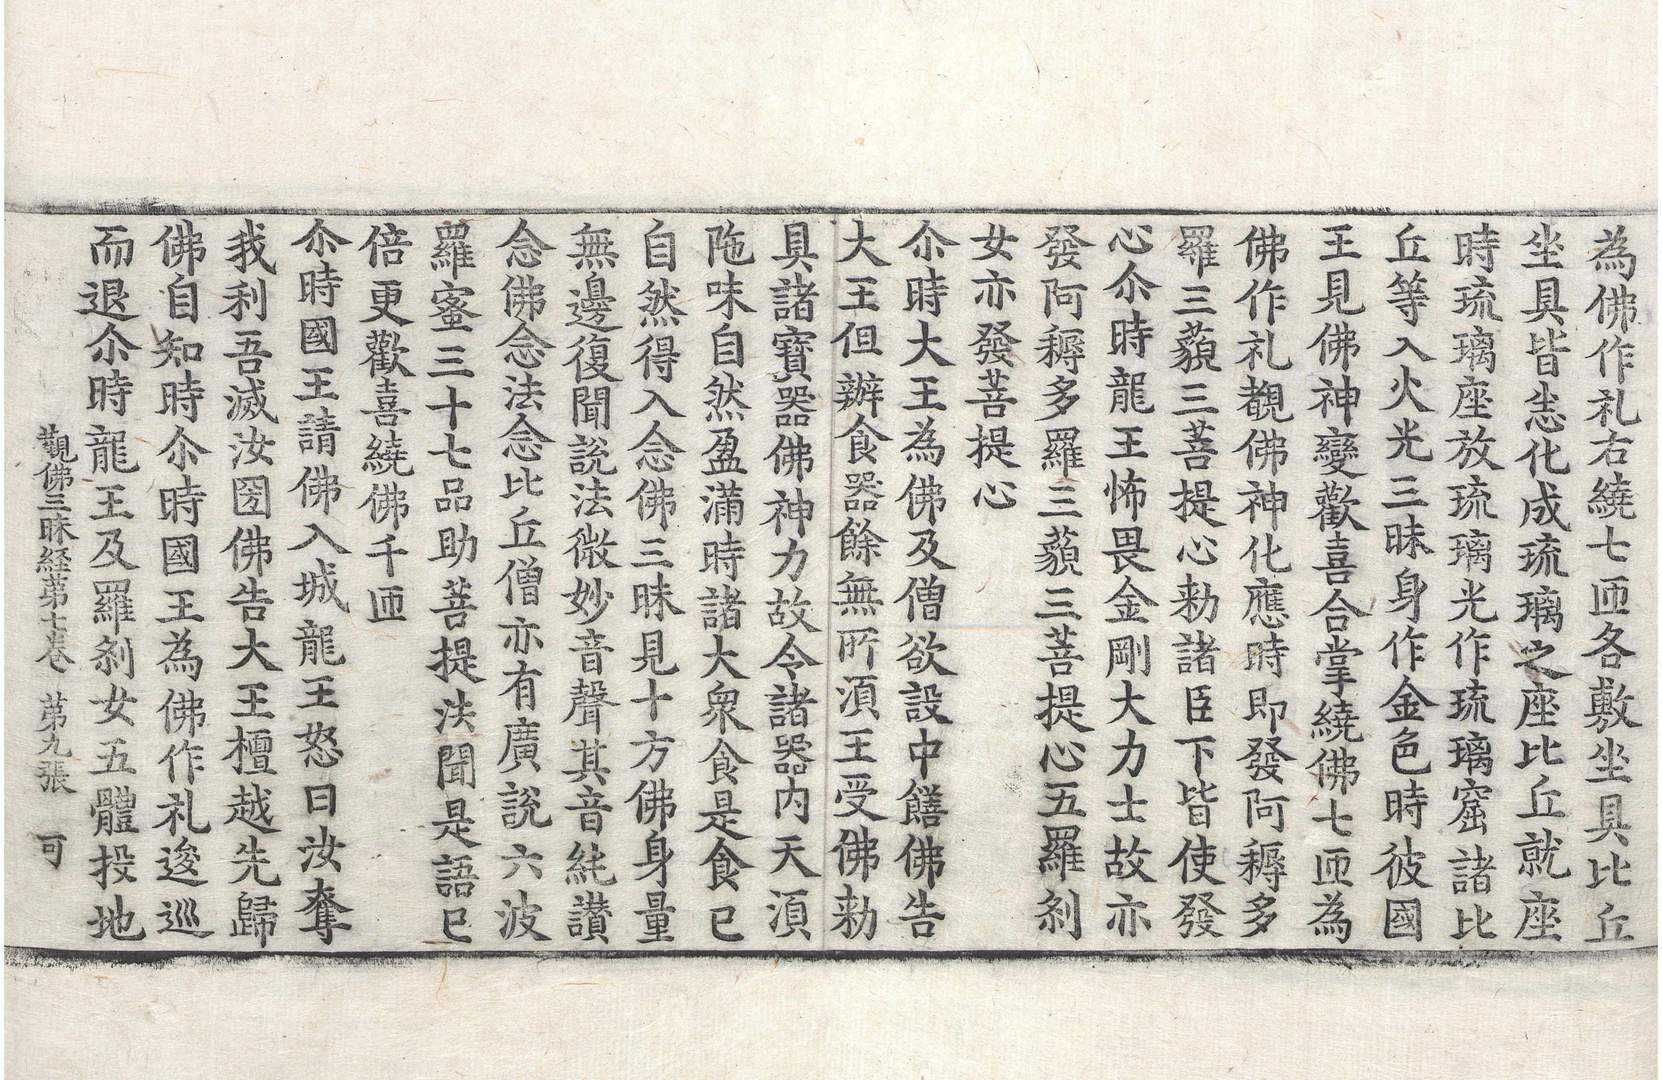 為佛作礼右繞七匝各敷坐具比丘
坐具皆悉化成琉璃之座比丘就座
時琉璃座放琉璃光作琉璃窟諸比
丘等入火光三昧身作金色時彼國
王見佛神變歡喜合掌繞佛七匝為
佛作礼覩佛神化應時即發阿耨多
羅三藐三菩提心勑諸臣下皆使發
心尒時龍王怖畏金剛大力士故亦
發阿耨多羅三藐三菩提心五羅剎
女亦發菩提心
尒時大王為佛及僧欲設中饍佛告
大王但辦食器餘無所湏王受佛勑
具諸寶器佛神力故令諸器内天湏
陁味自然盈滿時諸大衆食是食已
自然得入念佛三昧見十方佛身量
無邊復聞說法微妙音聲其音純讃
念佛念法念比丘僧亦有廣說六波
羅蜜三十七品助菩提法聞是語已
倍更歡喜繞佛千匝
尒時國王請佛入城龍王怒曰汝奪
我利吾滅汝国佛告大王檀越先歸
佛自知時尒時國王為佛作礼逡巡
而退尒時龍王及羅剎女五體投地
觀佛三昧経第七卷 第九張 可